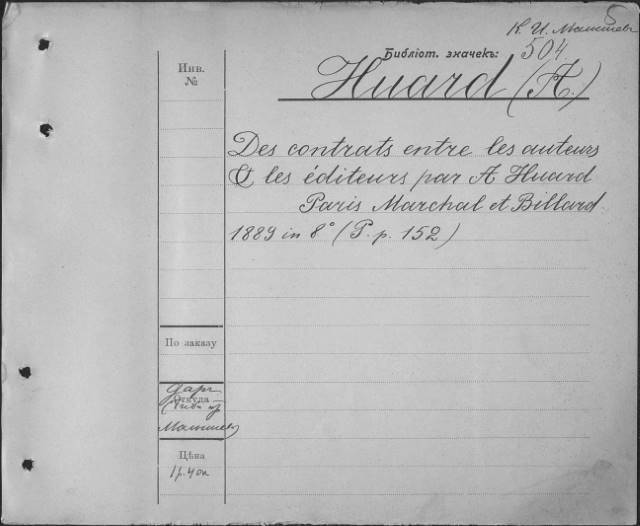 5
К. И. Малышев
Библіот. значекъ: 504
Huard (A)
Инв.
№
Des contrats entre les auteurs
& les éditeurs par A Huard
Paris Marchal et Billard
1889 in 8° (P. p. 152)
По заказу
Откуда
Малышев
Цѣна
1р. 40к